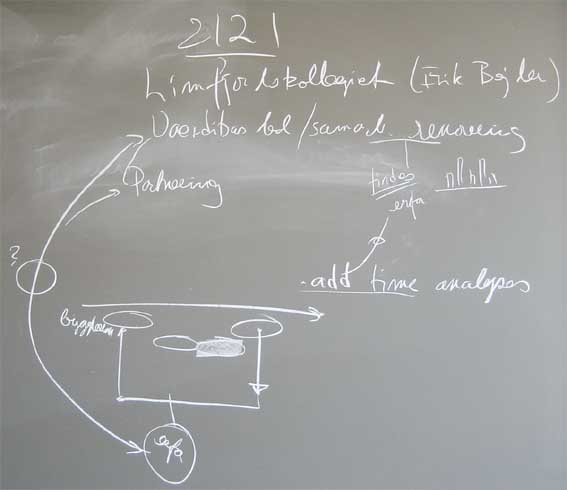 2121
Limfjordskollegiet (Erik Bejder)
Værdibas led/samarb. renovering
Partnering
findes
erfa
?
add time analyses
byggherre
erfa